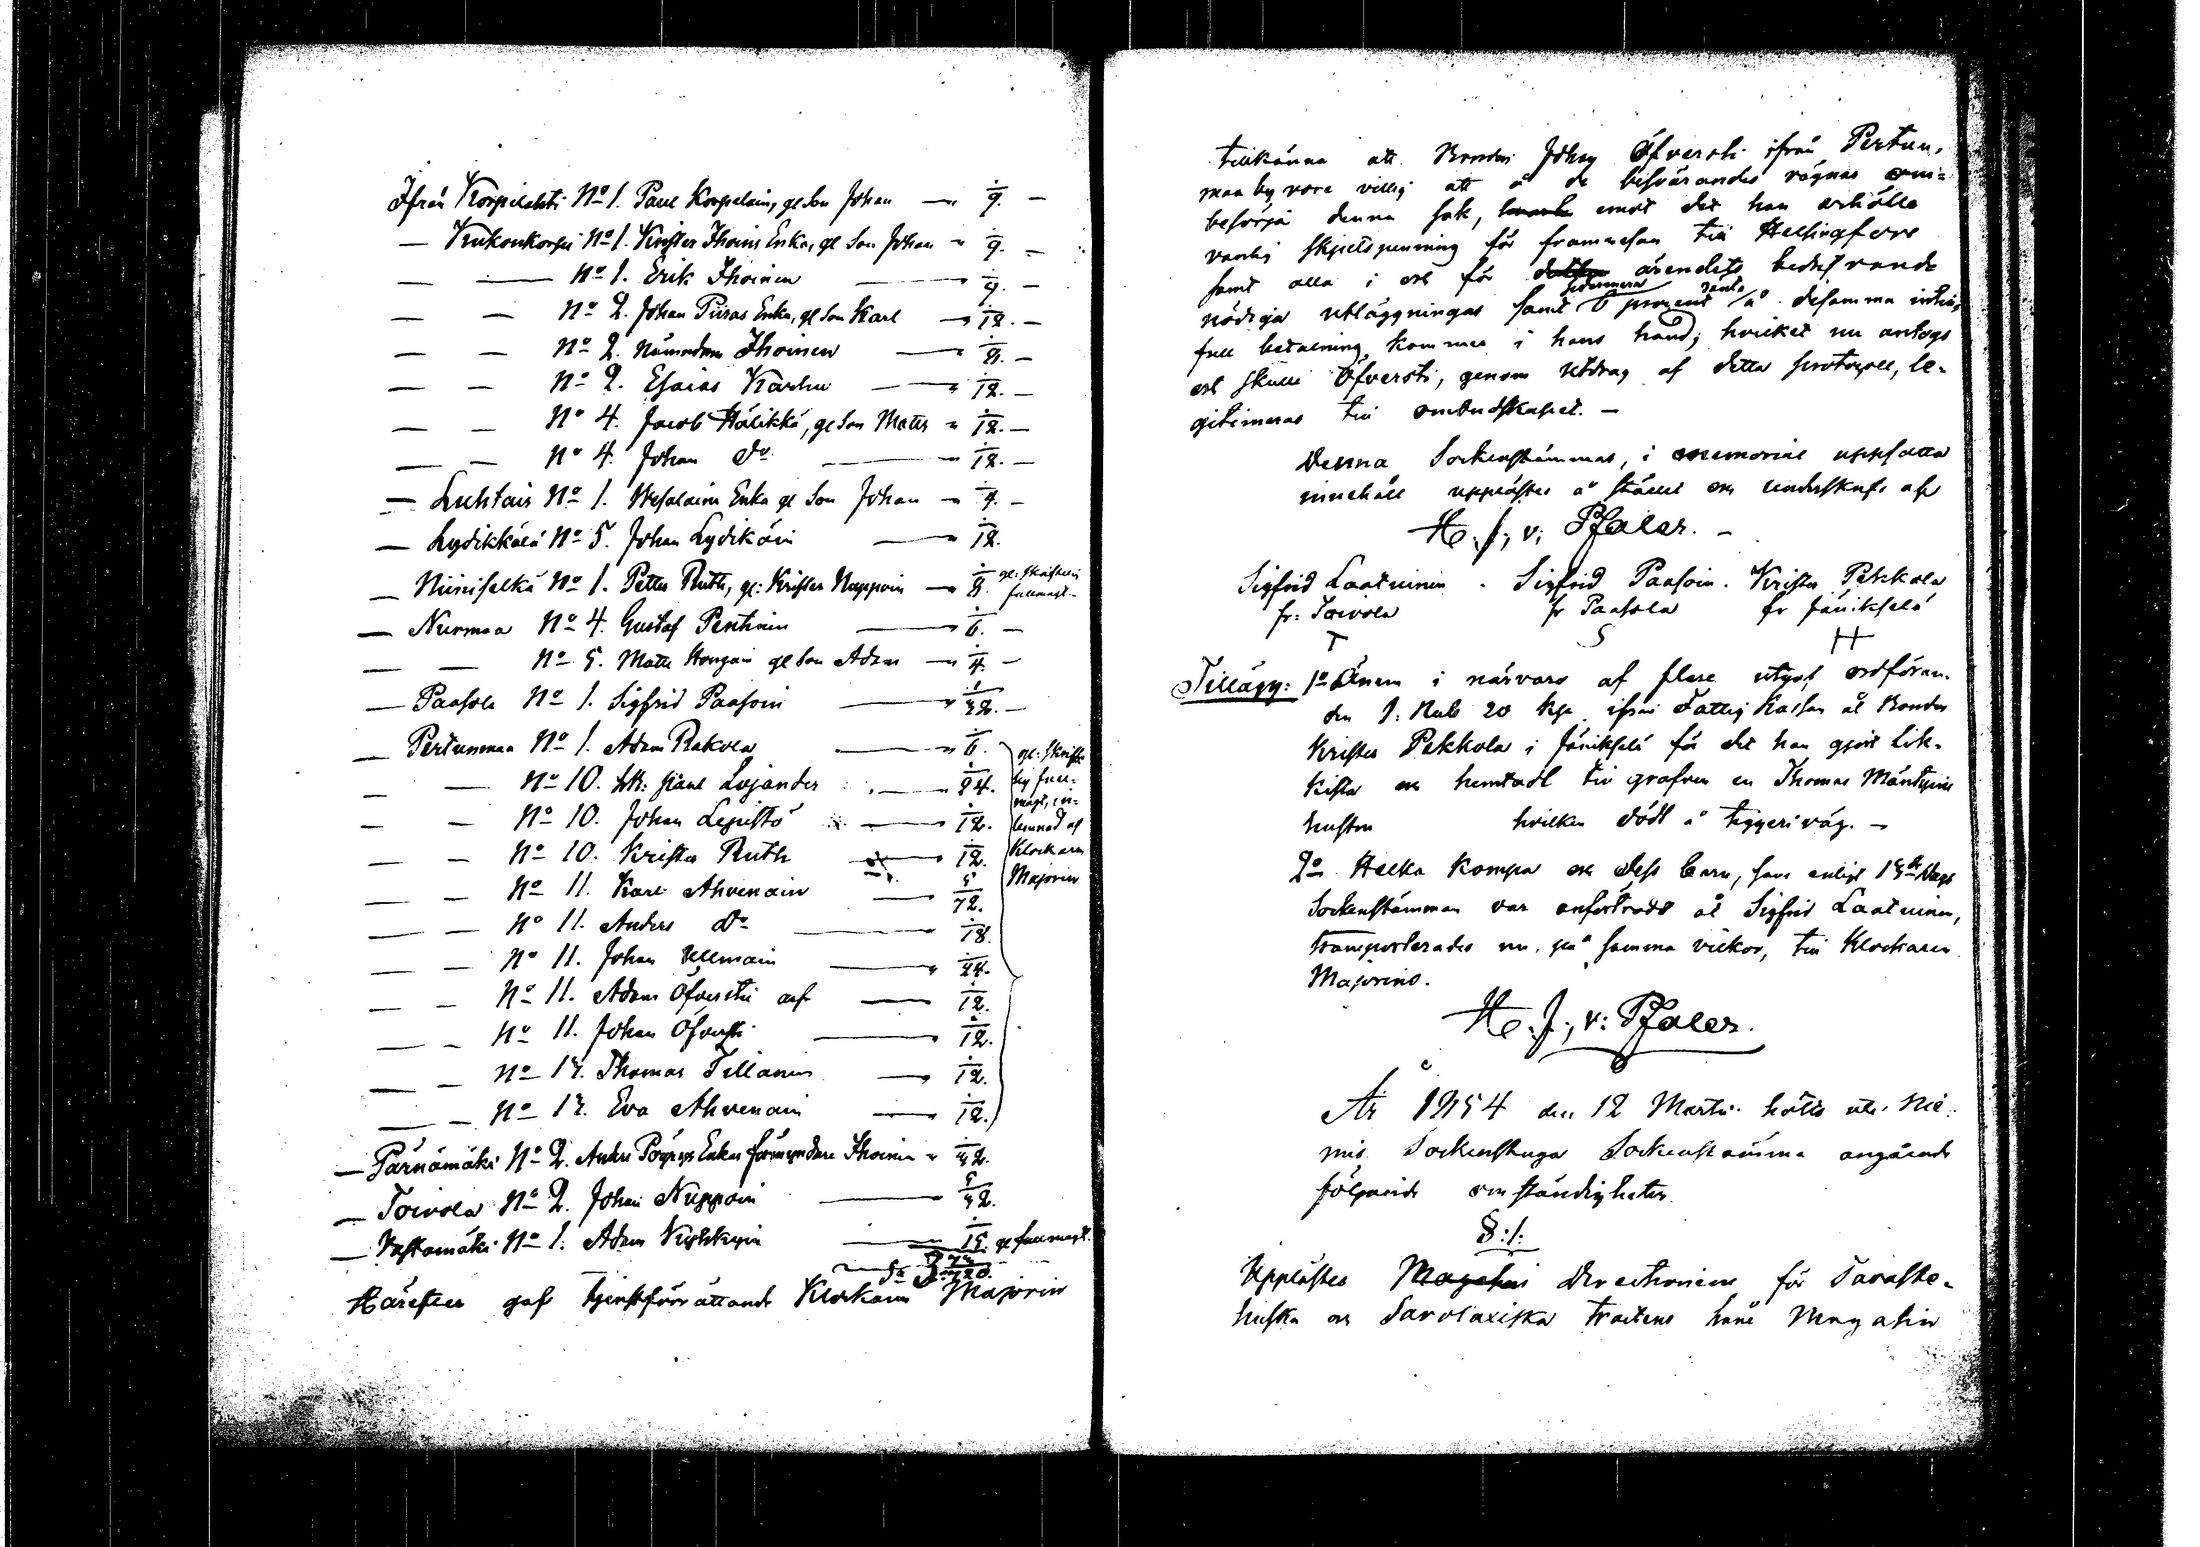 Ifrån Korpilahti No 1. Paul Korpelain, gl Son Johan — 1/9. —
— Kukonkorpi No 1. Krister Ihoins Enka, gl Son Johan " 1/9. —
— — No 1. Erik Ihoinen — 1/9. —
— — No 2. Johan Piiras Enka, gl Son Karl — 1/12. —
— — No 2. Nämndem Ihoinen — 1/8. —
— — No 2. Esaias Karhu — " 1/12. —
— — No 4. Jacob Hölikkä, gl Son Matts " 1/12. —
— — No 4. Johan do — " 1/12. —
— Luhtais No 1. Enka gl Son Johan — 1/9. —
— Lydikkälä No 5. Johan Lydikäin — 1/12.
— Niiniselkä No 1. Petter Ruth, gl: Krister Nuppoin — 1/8. gl: skriftelig
fullmagt. —
— Nurmaa No 4. Gustaf Pentinen — 1/6. —
— — No 5. Matts gl Son Adam — 1/4. —
— Paasola No 1. Sigfrid Paasoin — 1/32. —
— Pertunmaa No 1. Adam Rakola — " 1/6. gl: skrift-
— — No 10. Paul Lojander — " 1/24. lig full-
magt, in-
— — No 10. Johan Lepistö — " 1/12. lemnad af
— — No 10. Krister Ruth — 1/12. Klockaren
— — No 11. Karl Ahvenain — 5/72. Majorin
— — No 11. Anders do — 1/18.
— — No 11. Johan Ullmain — " 1/24.
— — No 11. Adam Öfverstii arf — 1/12.
— — No 11. Johan Öfversti — 1/12.
— — No 13. Thomas Tillanen — 1/12.
— — No 13. Eva Ahvenain — 1/12.
— Pärnämäki No 2. Anders Enkas förmyndare Ihoinen " 1/32.
— Toivola No 2. Johan Nuppoin — 5/32.
— Vastamäki No 1. Adam — 1/15. gl fullmagt.
Sa 3
Härefter gaf tjenstförrättande Klockaren Majorin
tillkänna att Bonden Johan Öfversti ifrån Pertun-
maa by vore villig att å de besvärandes vägnar om-
besörja denna sak, emot det han erhölle
vanlig skjutspenning för framresan till Helsingfors
samt alla i och för ärendets bedrifvande
sedermera ränta
nödiga utläggningar samt 6 procent å desamma intill
full betalning kommer i hans hand; hvilket nu antogs
och skulle Öfversti, genom utdrag af detta protocoll, le-
gitimeras till ombudskapet. —
Denna Sockenstämmas, i memorial uppsatta
innehåll upplästes å stället och underskrefs af
H. J; v; Pfaler. —
Sigfrid Laatuinen . Sigfrid Paasoin . Krister Pekkola
fr: Toivola fr Paasola fr Jänikselä
T S H
Tillägg: 1o Ännu i närvaro af flere utgaf ordföran-
den 1: Rub 20 kpr ifrån Fattig Kassan åt Bonden
Krister Pekkola i Jänikselä för det han gjort lik-
kista och hemtadt till grafven en Thomas Mäntyins
hustru hvilken dödt å tiggeri väg. —
2o Helka Kompa och dess barn, som enligt Dags
Sockenstämman var anförtrodt åt Sigfrid Laatuinen,
transporterades nu, på samma vilkor, till Klockaren
Majorins.
H. J; v: Pfaler.
År 1854 den 12 Martii hölls uti Nie-
mis Sockenstuga Sockenstämma angående
följande omständigheter.
§: 1:
Upplästes Directionens för Tavaste-
huska och Savolaxiska tractens låne Magasin